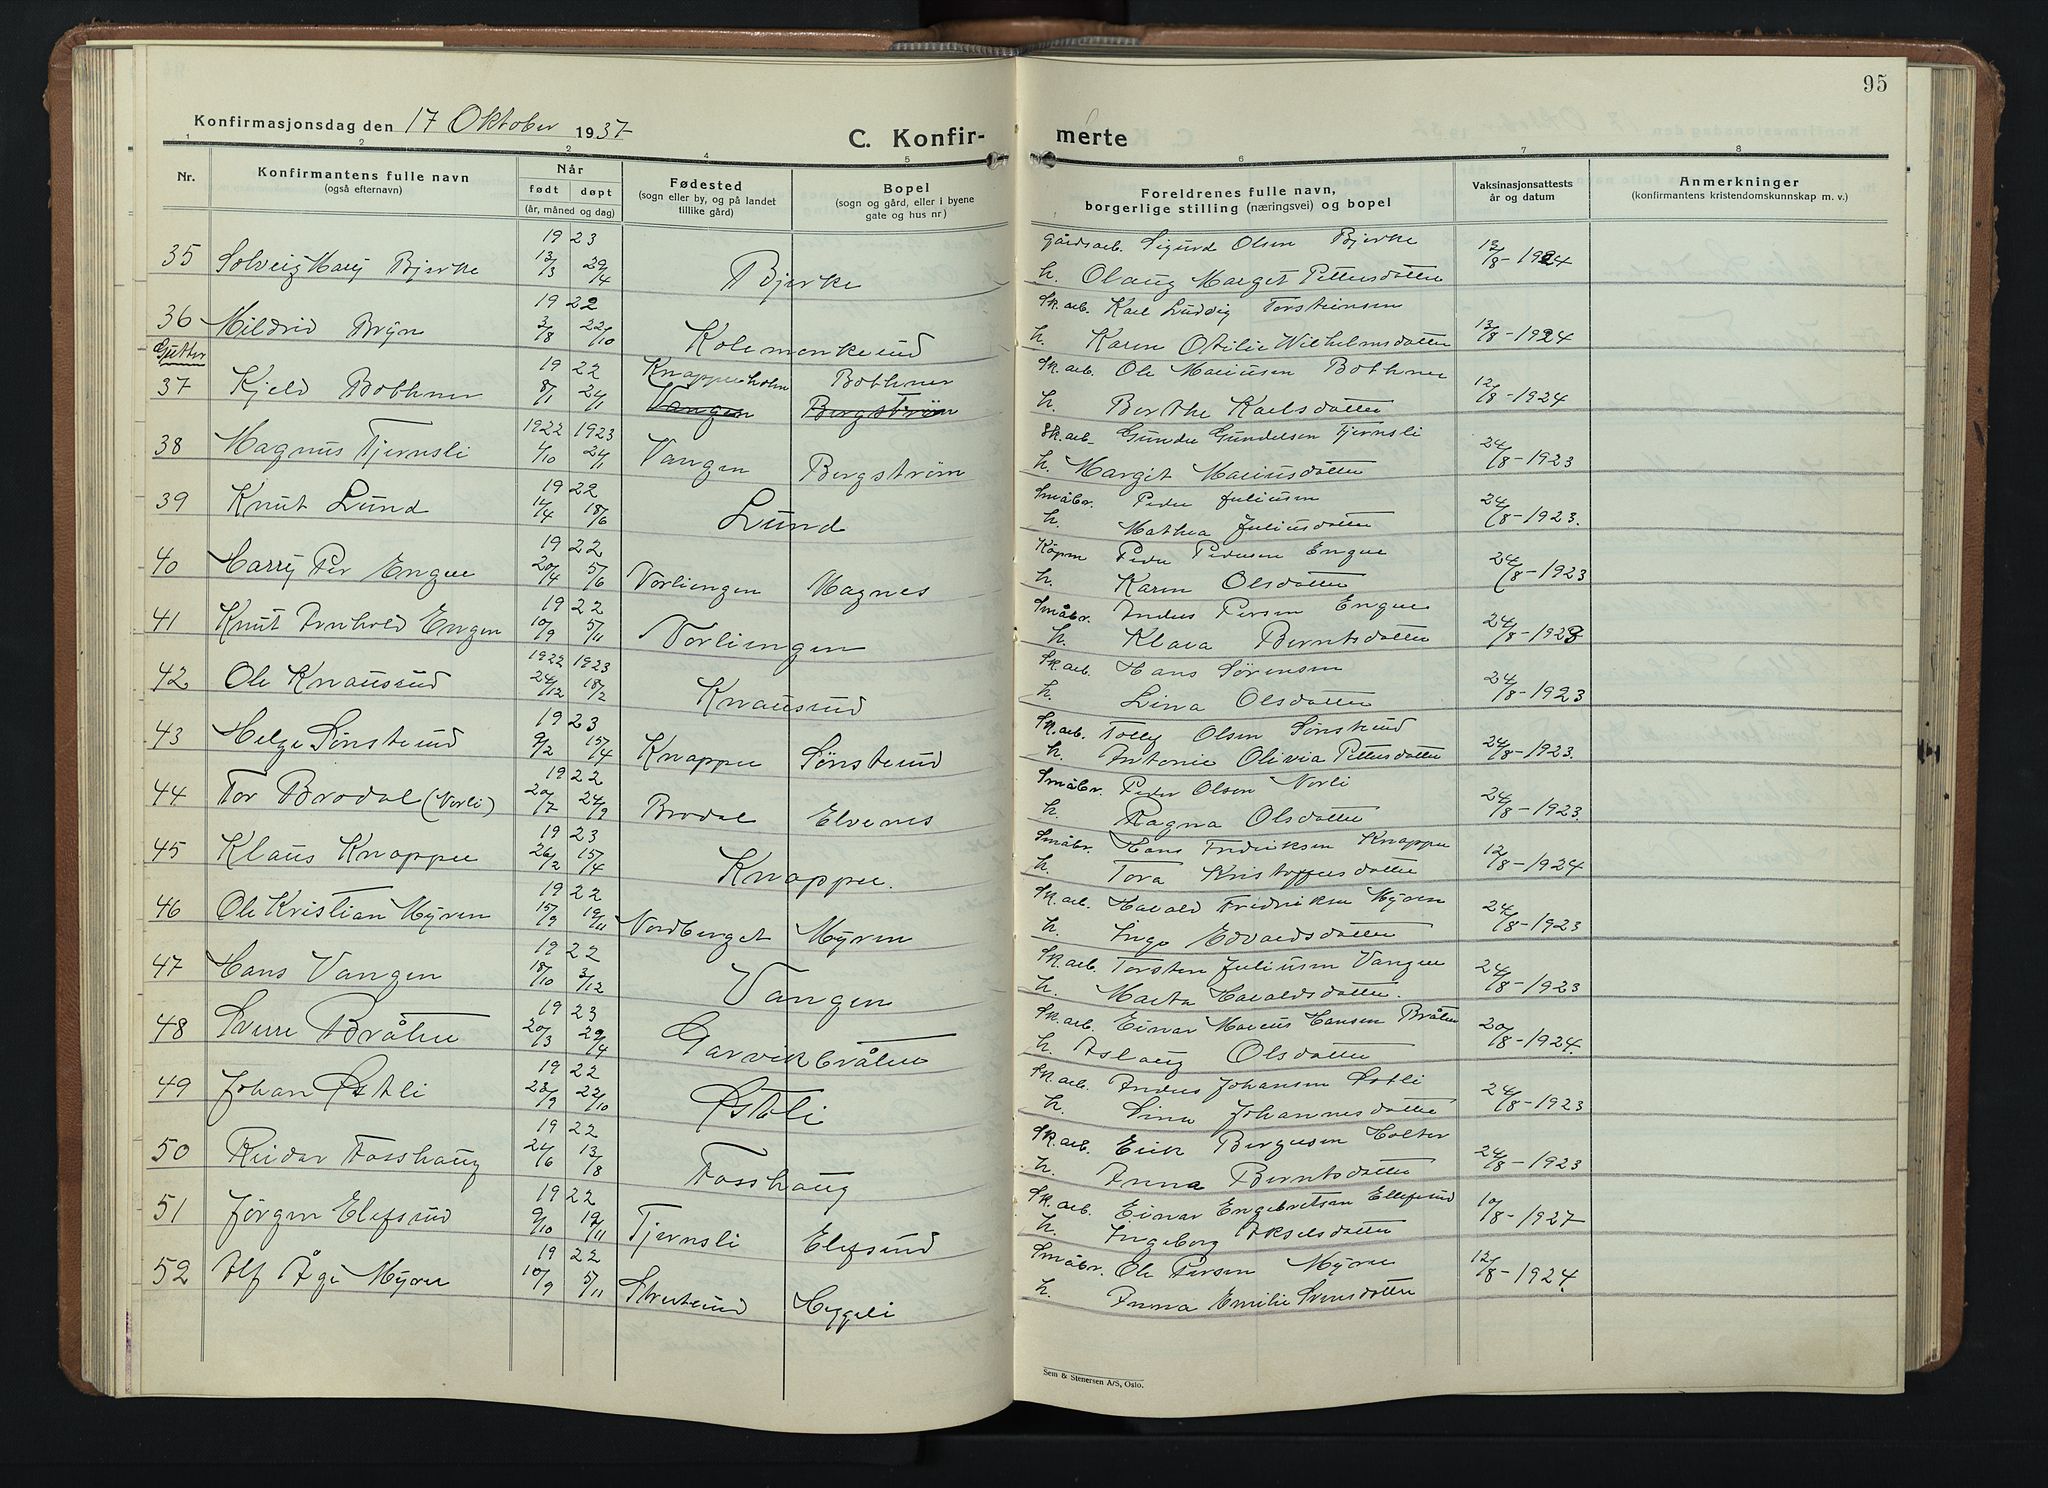 95
Konfirmasjonsdag den 17 Oktober 1937
C. Konfir-
merte
1 2 2 4 5 6 7 8
Nr.
Konfirmantens fulle navn
(også efternavn)
Når
født døpt
(år, måned og dag)
Fødested
(sogn eller by, og på landet
tillike gård)
Bopel
(sogn og gård, eller i byene
gate og hus nr)
Foreldrenes fulle navn,
borgerlige stilling (næringsvei) og bopel
Vaksinasjonsattests
år og datum
Anmerkninger
(konfirmantens kristendomskunnskap m. v.)
1923 Gårdsarb. Sigurd Olsen Bjerke
35 Solveig Marij Bjerke 13/3 29/4 Bjerke h. Olaug Marget Pettersdatter 12/8-1924
1922 Sk.arb. Karl Ludvig Torstensen
36 Mildrid Brÿn 3/8 22/10 Kolemonkerud h. Karen Otilie Wilhelmsdatter 12/8-1924
Gutter
1922 Knapperholm Bothner Sk.arb. Ole Mariusen Bothner
37 Kjeld Bothner 8/1 24/1 Vangen Bergstrøm h. Berthe Karlsdatter 12/8-1924
1922 1923 Sk.arb. Gunder Gundersen Tjernsli
38 Magnus Tjernsli 4/10 24/1 Vangen Bergstrøm h. Margit Mariusdatter 24/8-1923
1922 Småbr. Peder Juliusen
39 Knut Lund 14/4 18/6 Lund h. Mathea Juliusdatter 24/8-1923.
1922 Kjøpm Peder Pedersen Enger
40 Harrÿ Per Enger 20/4 5/6 Vorliengen Magnes h. Karen Olsdatter 24/8-1923
1922 Småbr. Anders Persen Enger
41 Knut Arnhold Engen 10/9 5/11 Vorliengen h. Klara Berntsdatter 24/8-1923
1922 1923 Sk.arb. Hans Sørensen
42 Ole Knausrud 24/12 18/2 Knausrud h. Lina Olsdatter 24/8-1923
1923 Sk.arb. Tolly Olsen Sønsterud
43 Helge Sønsterud 9/2 15/4 Knapper Sønsterud h. Antonie Olivia Pettersdatter 24/8-1923.
1922 Småbr. Peder Olsen Vorli
44 Tor Brodal (Vorli) 20/7 24/9 Brodal Elvenes h. Ragna Olsdatter 24/8-1923.
1923 Småbr. Hans Fredriksen Knapper
45 Klaus Knapper 26/2 15/4 Knapper. h. Tora Kristoffersdatter 12/8-1924
1922 Sk.arb. Harald Fridriksen Mÿren
46 Ole Kristian Mÿren 15/9 19/11 Nordberget Mÿren h. Inga Edvardsdatter 24/8-1923
1922 Sk.arb. Torsten Juliusen Vangen
47 Hans Vangen 18/10 3/12 Vangen h. Marta Haraldsdatter. 24/8-1923
1923 Sk.arb. Einar Marius Hansen Bråten
48 Sverre Bråten 20/3 29/4 Garvikbråten h. Aslaug Olsdatter 20/8-1924.
1922 Sk.arb. Anders Johansen Østli
49 Johan Østli 23/9 22/10 Østli h. Sina Johannesdatter 24/8-1923
1922 Sk.arb. Erik Bergersen Holter
50 Reidar Fosshaug 24/6 13/8 Fosshaug h. Anna Berntsdatter 24/8-1923
1922 Sk.arb. Einar Engebretsen Ellefsrud
51 Jørgen Elefsrud 9/10 19/11 Tjernsli Elefsrud h. Ingeborg Akselsdatter 10/8-1927
1922 Småbr. Ole Persen Mÿrer
52 Alf Åge Mÿrer 10/9 5/11 Heggeli h. Anna Emilie Svensdatter 12/8-1924.
Sem & Stenersen A/S, Oslo.